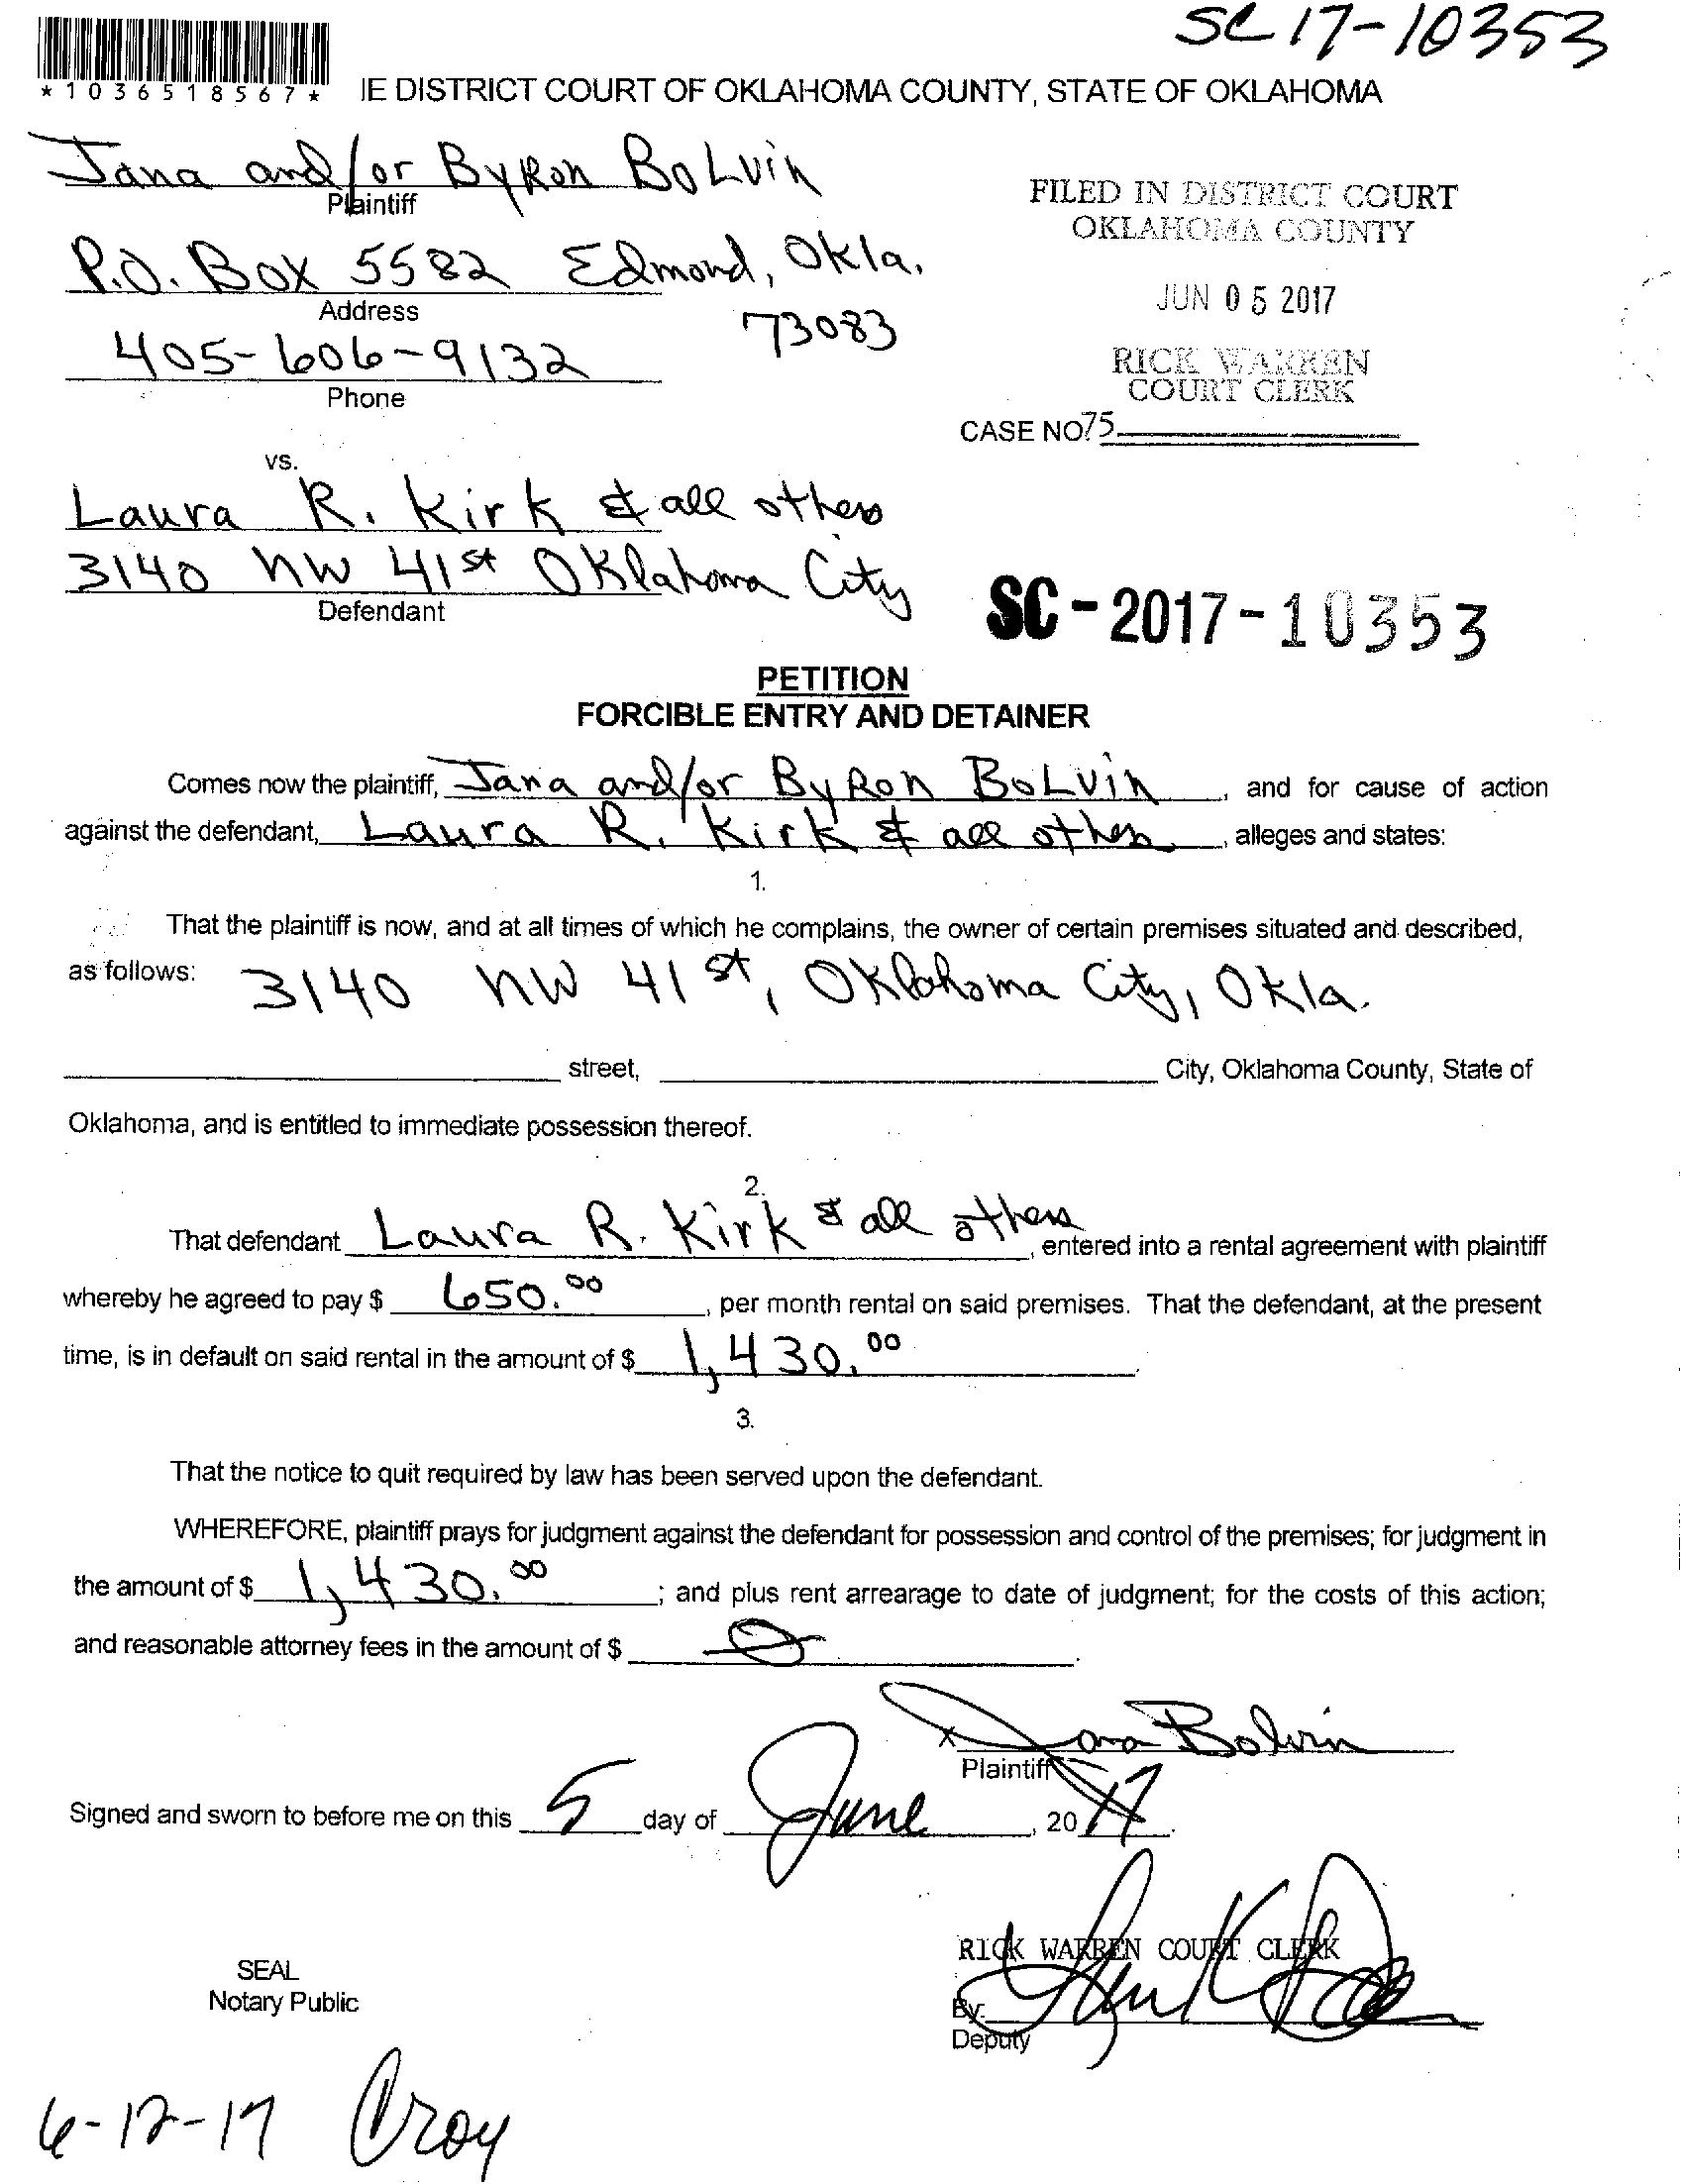 SC 17-10353
*1036518567*
IE DISTRICT COURT OF OKLAHOMA COUNTY, STATE OF OKLAHOMA
Jana and/or Byron Bolvin
Plaintiff
FILED IN DISTRICT COURT
OKLAHOMA COUNTY
P.O. Box 5582 Edmond, Okla.
Address
73083
JUN 05 2017
405-606-9132
Phone
RICK WARREN
COURT CLERK
CASE NO 75
vs.
Laura R. Kirk & all others
3140 NW 41st Oklahoma City
Defendant
SC-2017-10353
PETITION
FORCIBLE ENTRY AND DETAINER
Comes now the plaintiff, Jana and/or Byron Bolvin, and for cause of action
against the defendant, Laura R. Kirk & all others, alleges and states:
1.
That the plaintiff is now, and at all times of which he complains, the owner of certain premises situated and described,
as follows: 3140 NW 41st, Oklahoma City, Okla.
street, City, Oklahoma County, State of
Oklahoma, and is entitled to immediate possession thereof.
2.
That defendant Laura R. Kirk & all others, entered into a rental agreement with plaintiff
whereby he agreed to pay $ 650.00, per month rental on said premises. That the defendant, at the present
time, is in default on said rental in the amount of $ 1,430.00.
3.
That the notice to quit required by law has been served upon the defendant.
WHEREFORE, plaintiff prays for judgment against the defendant for possession and control of the premises; for judgment in
the amount of $ 1,430.00; and plus rent arrearage to date of judgment; for the costs of this action;
and reasonable attorney fees in the amount of $ 0.
x Jana Bolvin
Plaintiff
Signed and sworn to before me on this 5 day of June, 20 17.
RICK WARREN COURT CLERK
SEAL
Notary Public
By:
Deputy
6-12-17 Croy